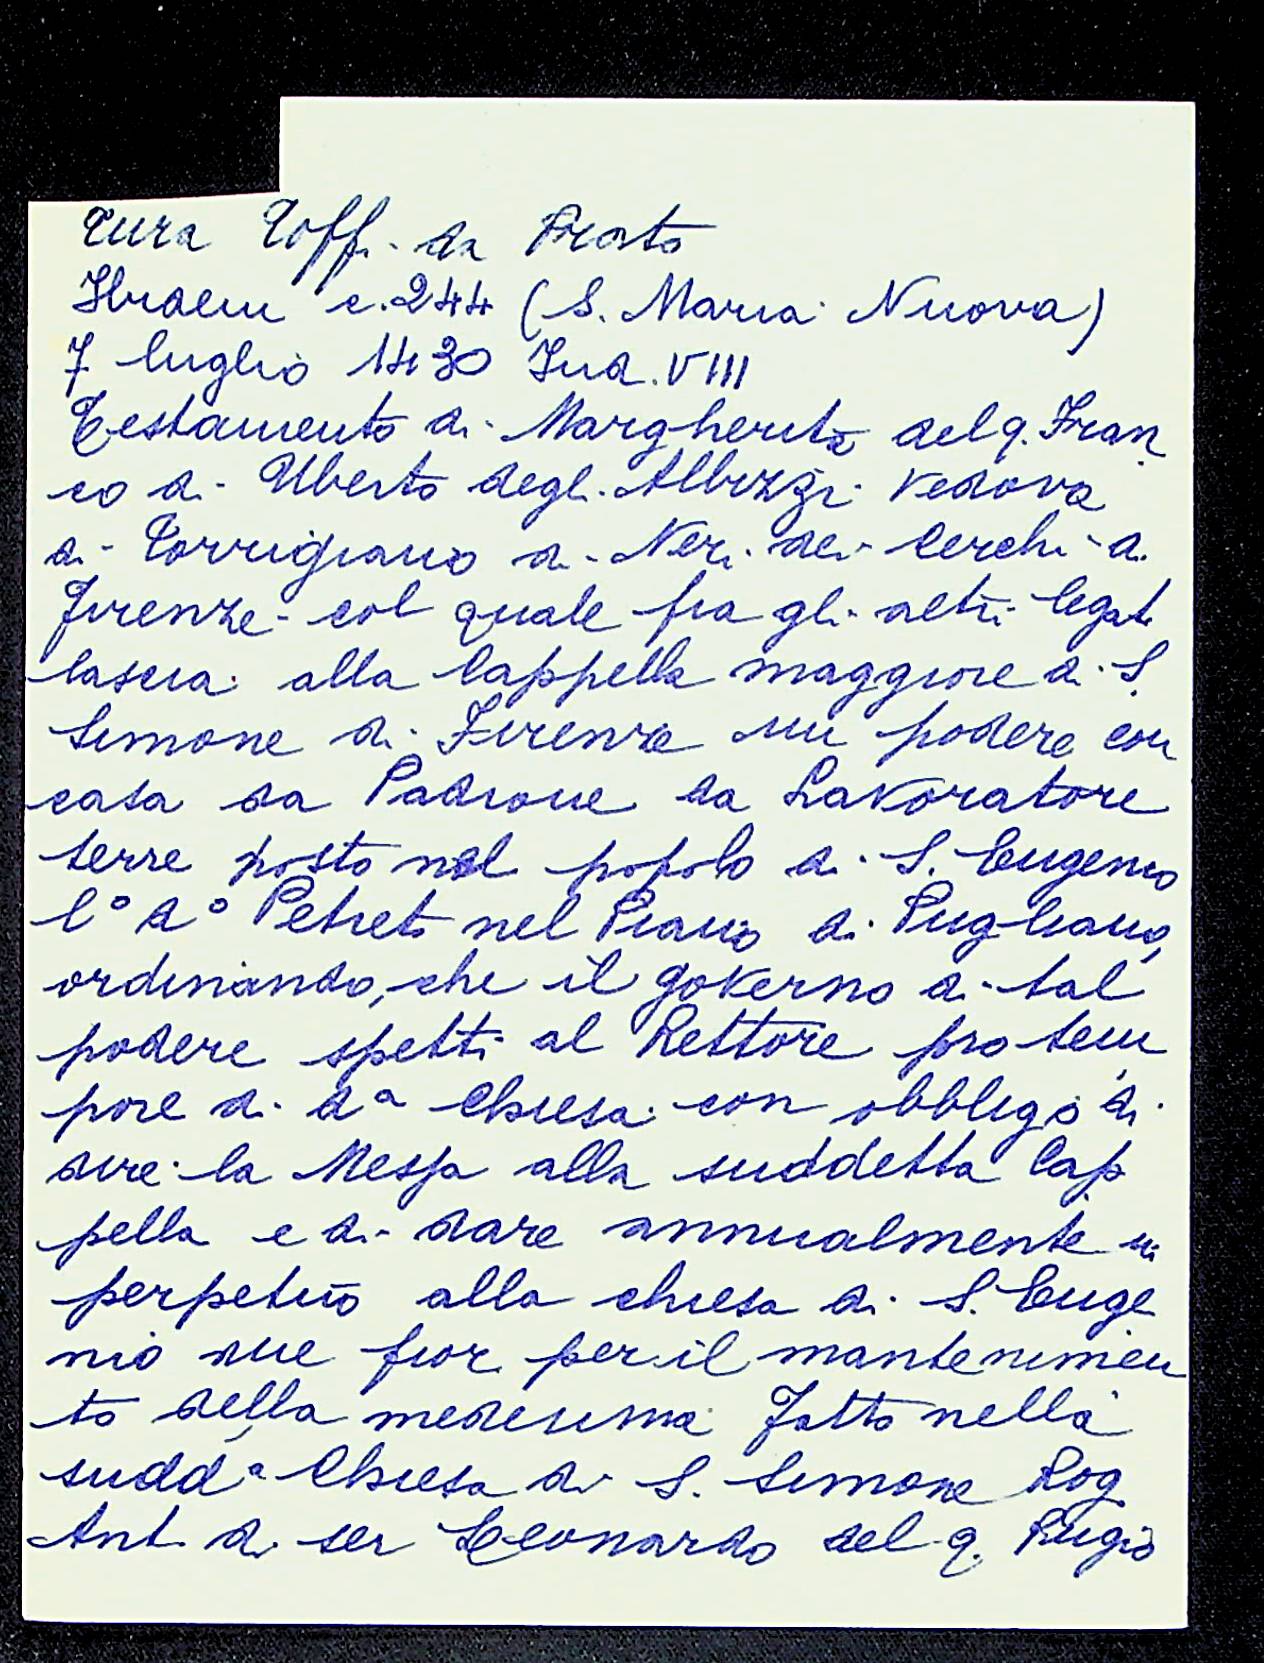 Tura Toffi da Prato
Ibidem c. 244 (S. Maria Nuova)
7 luglio 1430 Ind. VIII
Testamento di Margherita del q. Fran
co di Uberto degli Albizzi vedova
di Torrigiano di Neri dei Cerchi di
Firenze col quale fra gli altri legati
lascia alla Cappella maggiore di S.
Simone di Firenze un podere con
casa da Padrone da Lavoratore
terre posto nel popolo di S. Eugenio
l° d° Petreti nel Piano di Pugliano,
ordinando, che il governo di tal
podere spetti al Rettore pro tem
pore di dª Chiesa con obbligo di
dire la Messa alla suddetta Cap
pella e di dare annualmente in
perpetuo alla chiesa di S. Euge
nio due fior. per il mantenimen
to della medesima Fatto nella
suddª Chiesa di S. Simone Rog
Ant. di ser Leonardo del q.